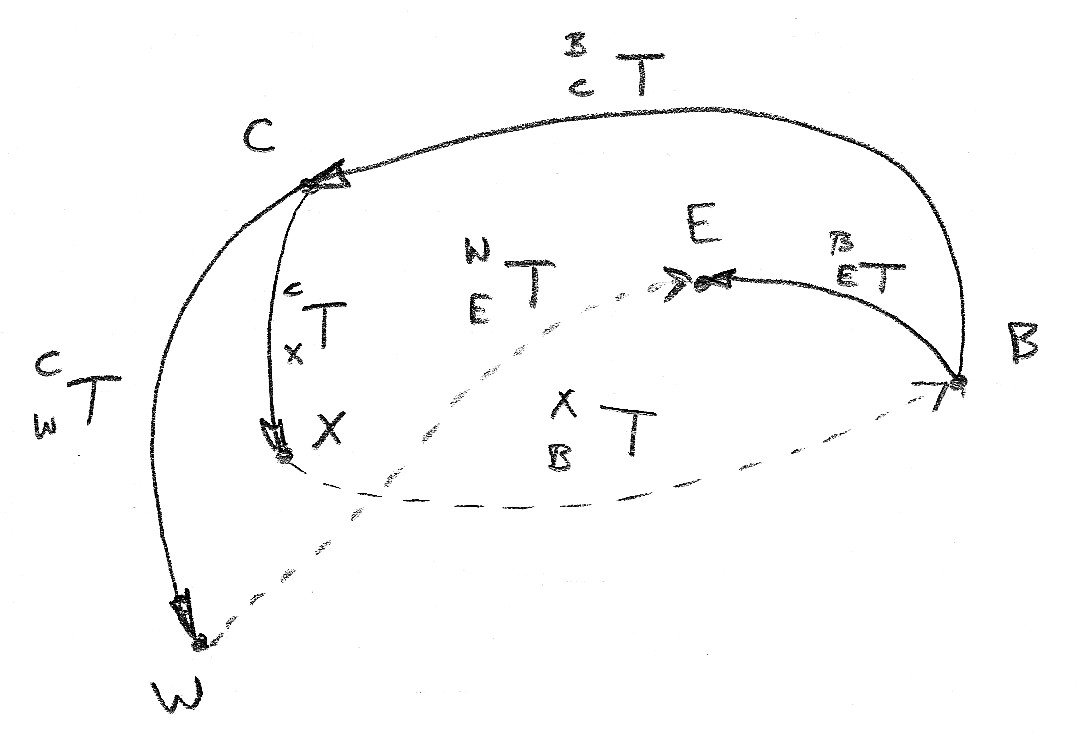 B
C T
C
E
W
E T
B
E T
C
X T
B
C
W T
X
X
B T
W